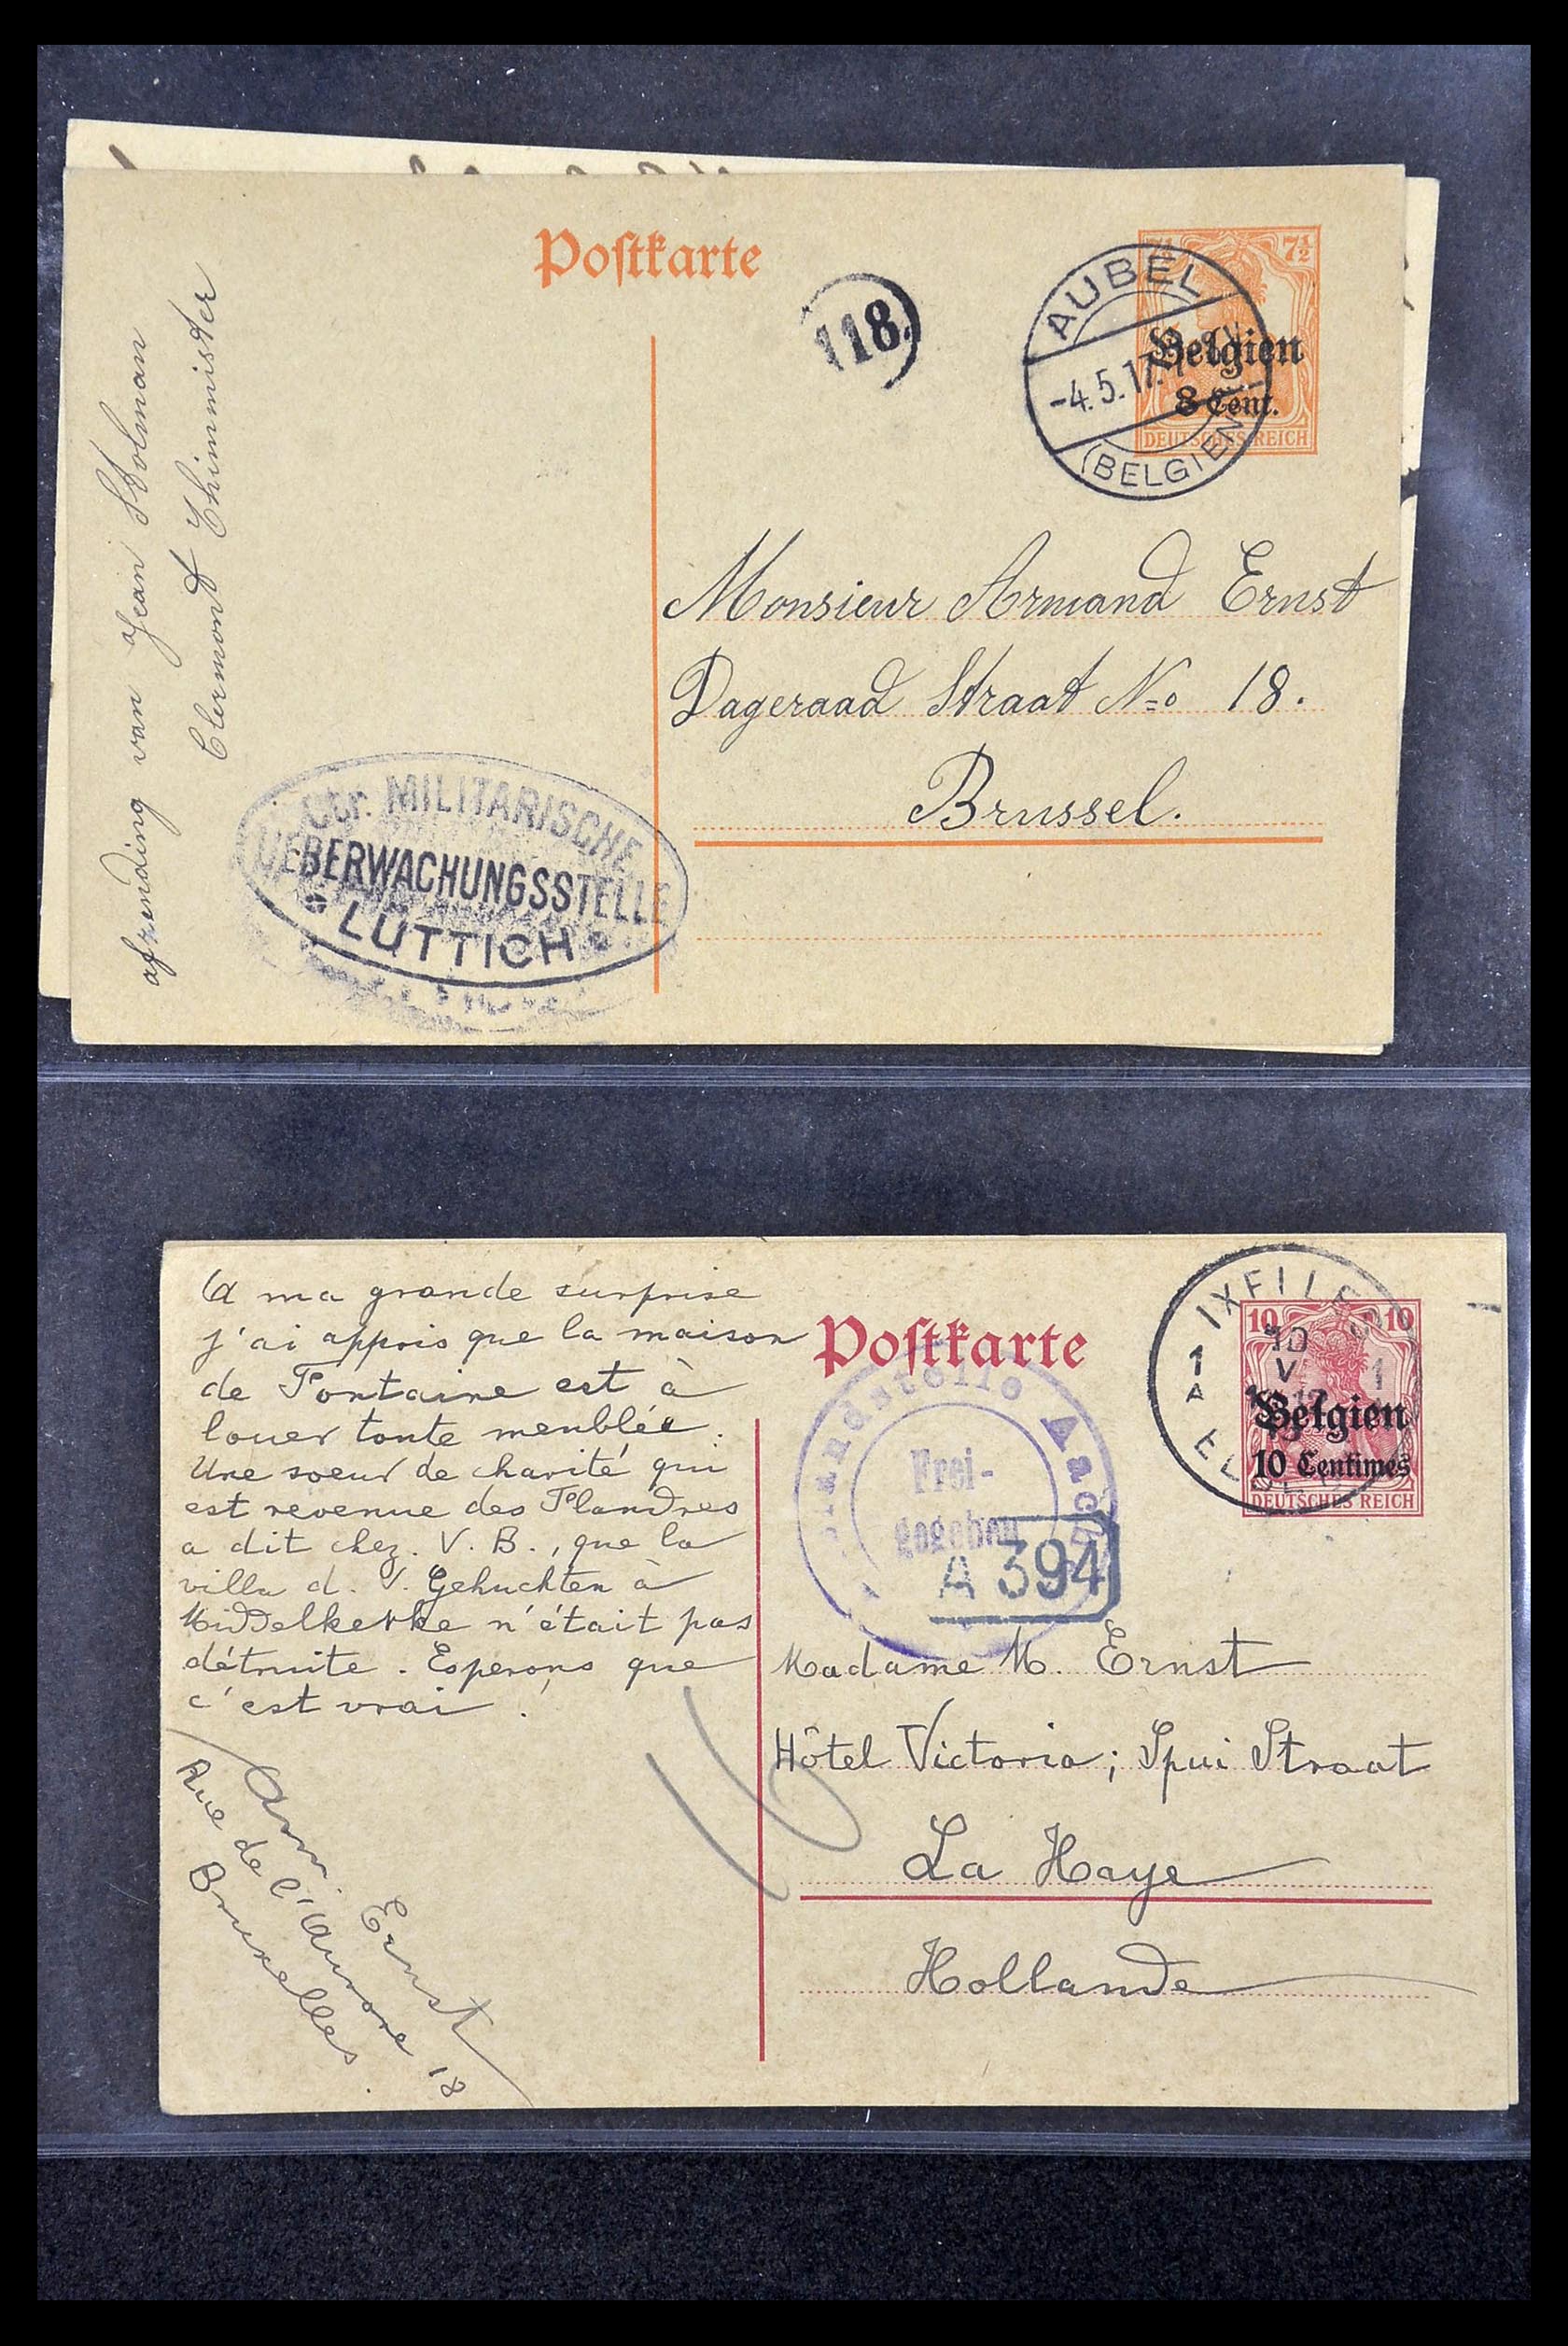 Postkarte
118.
AUBEL
-4.5.17.
(BELGIEN)
7½
Belgien
8 Cent.
DEUTSCHES REICH
Monsieur Armand Ernst
Dageraad Straat No 18.
Brussel.
afzending van Jean Stolman
Clermont Thimmister
MILITÄRISCHE
UEBERWACHUNGSSTELLE
LÜTTICH
A ma grande surprise
j'ai appris que la maison
de Fontaine est à
louer toute meublée.
Une soeur de charité qui
est revenue des Flandres
a dit chez. V. B., que la
villa d. V. Gehuchten à
Middelkerke n'était pas
détruite. Esperons que
c'est vrai!
Arm. Ernst
Rue de l'Aurore 18
Bruxelles.
Postkarte
Frei-
gegeben
A 394
IXELLES
1
A
10
V
1
ELSENE
10 10
Belgien
10 Centimes
DEUTSCHES REICH
Madame M. Ernst
Hôtel Victoria; Spui Straat
La Haye
Hollande